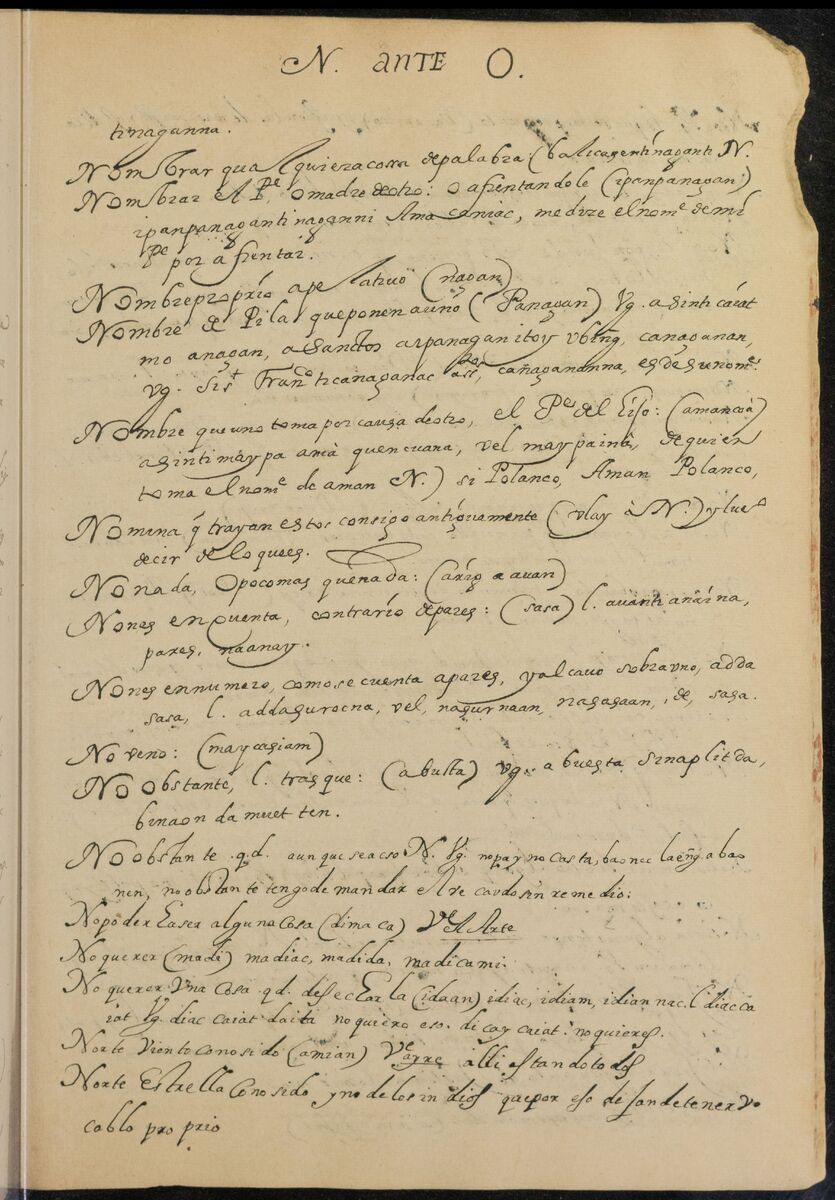 N. ANTE O.
tinaganna.
Nombrar qualquiera cossa de palabra: (balicagentinaganti N.
Nombrar el Pe. o madre de otro: o afrentandole (ipanpanagan)
ipanpanagantinaganni Ama caniac, me dize el nome. de mi
Pe por afrentar.
Nombre proprio apelativo (nagan)
Nombre de Pila que ponen a uno (Panagan) Vg. asinti caiat
mo anagan, a Sanctos canagunan,
Vg. Sist Franco. ticanaganac canagananna, es de su nome.
Nombre que uno toma por causa de otro, el Pe. del hijo: (amancoa)
asintimaypa amà quencuana, vel maypainà, de quien
toma el nome. de aman N.) si Polanco, Aman Polanco,
Nomina q̃ trayan estos consigo antiguamente (ulay à N.) y lueo
decir de lo que es.
Nonada, o poco mas que nada: (arig a auan)
Nones en quenta, contrario de pares: (sasa) l. auanti anaina,
pares, naanay.
Nones en numero, como se cuenta a pares, y al cavo sobra uno, adda
sasa, l. addasurocna, vel, nasurnaan, nasasaan, de, sasa.
Noveno: (maycasiam)
No Obstante, l. tras que: (abusta) vg. abuesta sinaplitda,
binaonda muet ten.
No obstante .q.d. aunque sea eso N. Vg. nopayno casta, baonec laeng a bao
nen, no obstante tengo de mandar
No poder haser alguna cosa (dimaca) Ve Arte
No querer (madi) madiac, madida, madicami.
No querer una cosa .q.d. desecharla (idaan) idiac, idiam, idiannac. l. diac ca
iat Vg. diac caiat daita no quiero eso. dicay caiat. no quieres.
Norte Viento conosido (amian) Ve ayre alli estan dotodos
Norte Estrella conosido y no de los indios que por eso desan de tener vo
cablo proprio